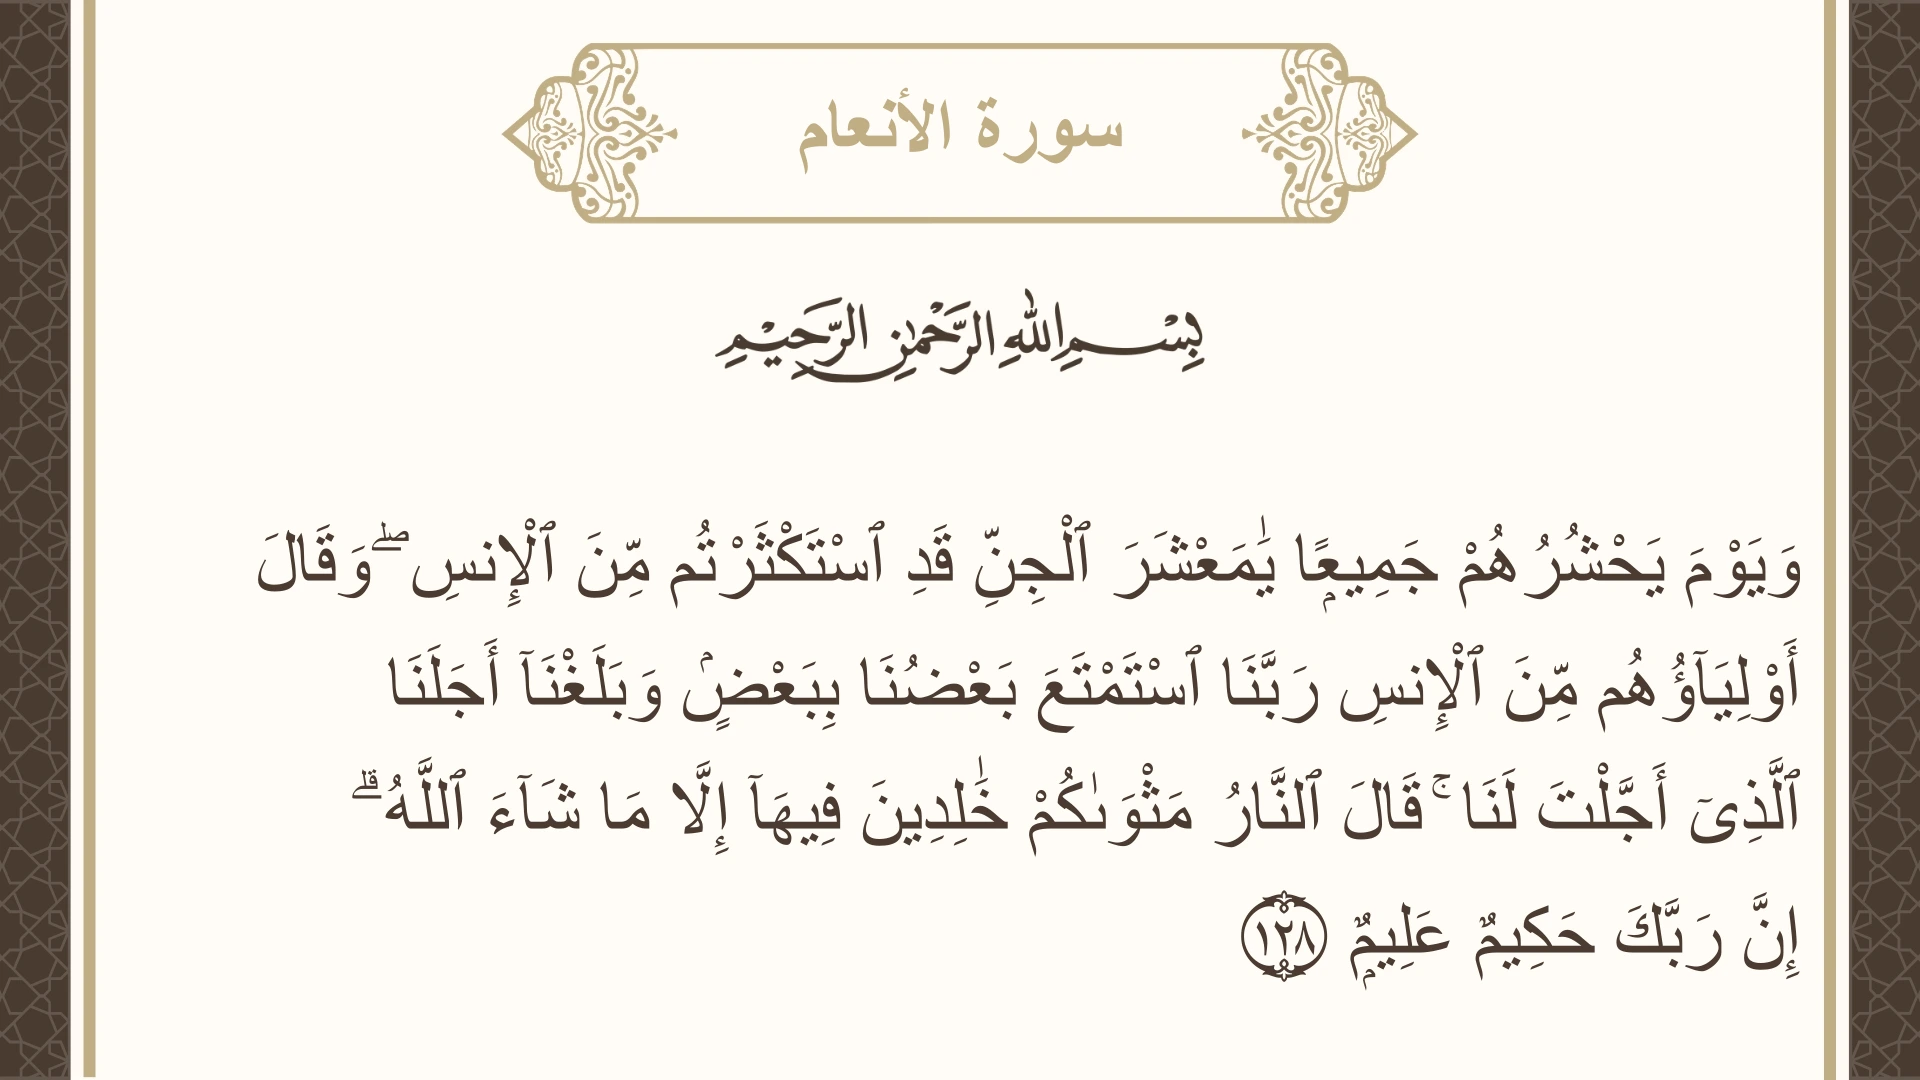 سورة الأنعام
بِسْمِ اللهِ الرَّحْمٰنِ الرَّحِيْمِ
وَيَوْمَ يَحْشُرُهُمْ جَمِيعًۭا يَٰمَعْشَرَ ٱلْجِنِّ قَدِ ٱسْتَكْثَرْتُم مِّنَ ٱلْإِنسِ ۖ وَقَالَ
أَوْلِيَآؤُهُم مِّنَ ٱلْإِنسِ رَبَّنَا ٱسْتَمْتَعَ بَعْضُنَا بِبَعْضٍۢ وَبَلَغْنَآ أَجَلَنَا
ٱلَّذِىٓ أَجَّلْتَ لَنَا ۚ قَالَ ٱلنَّارُ مَثْوَىٰكُمْ خَٰلِدِينَ فِيهَآ إِلَّا مَا شَآءَ ٱللَّهُ ۗ
إِنَّ رَبَّكَ حَكِيمٌ عَلِيمٌۭ ١٢٨